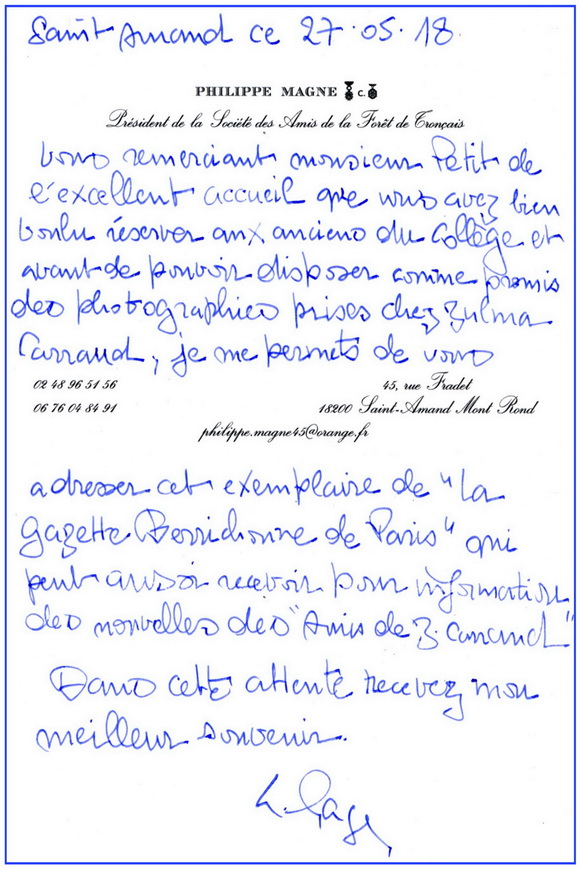 Saint Amand ce 27.05.18.
PHILIPPE MAGNE C.
Président de la Société des Amis de la Forêt de Tronçais
Vous remerciant monsieur Petit de
l'excellent accueil que vous avez bien
voulu réserver aux anciens du Collège et
avant de pouvoir disposer comme promis
des photographies prises chez Zulma
Carraud, je me permets de vous
02 48 96 51 56
45, rue Fradet
06 76 04 84 91
18200 Saint-Amand Mont Rond
philippe.magne45@orange.fr
adresser cet exemplaire de "La
Gazette Berrichonne de Paris" qui
peut aussi recevoir pour information
des nouvelles des "Amis de Z. Carraud"
Dans cette attente recevez mon
meilleur souvenir.